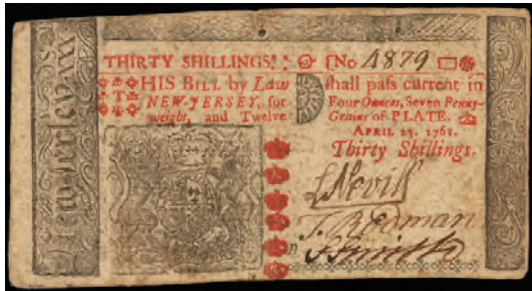 New Jersey
THIRTY SHILLINGS. No 4879
THIS BILL by Law shall pass current in
NEW-JERSEY, for Four Ounces, Seven Penny-
weight, and Twelve Grains of PLATE.
APRIL 23. 1761.
Thirty Shillings.
S Nevill
J. Rodman
S Smith